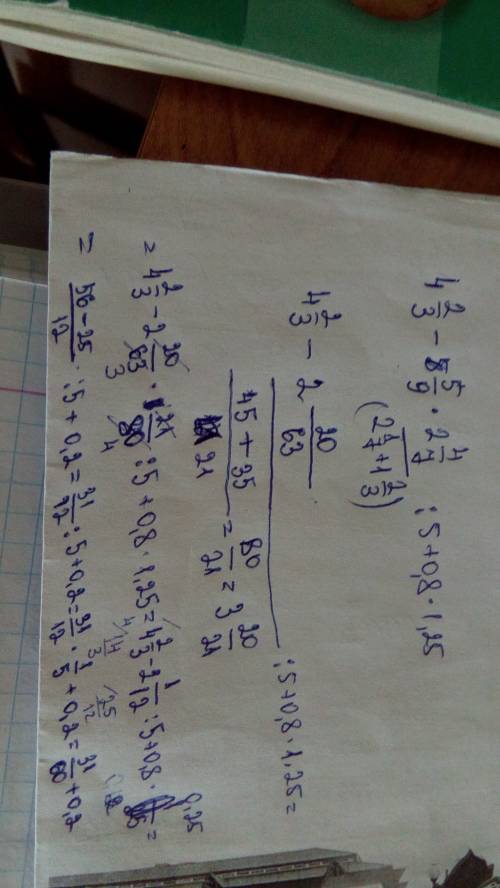 4 2/3 − 8 5/9 · 2 4/7 / (2 1/7 + 1 2/3) : 5 + 0,8 · 1,25
4 2/3 − 2 20/63 / : 5 + 0,8 · 1,25 =
45 + 35 / 21 = 80/21 = 3 20/21
= 4 2/3 − 2 20/63 · 21/80 : 5 + 0,8 · 1,25 = 4 2/3 − 2 1/12 : 5 + 0,8 · 0,25 =
= 56 − 25 / 12 : 5 + 0,2 = 31/12 : 5 + 0,2 = 31/12 · 1/5 + 0,2 = 31/60 + 0,2